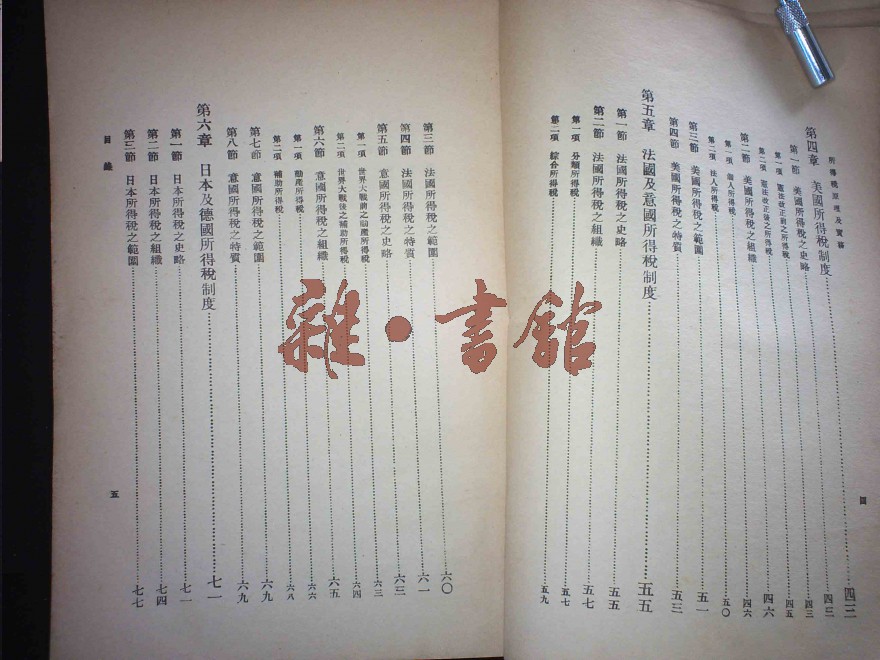 所得稅原理及實務
四
第四章 美國所得稅制度……四三
第一節 美國所得稅之史略……四三
第一項 憲法改正前之所得稅……四三
第二項 憲法改正後之所得稅……四五
第二節 美國所得稅之組織……四六
第一項 個人所得稅……四六
第二項 法人所得稅……五〇
第三節 美國所得稅之範圍……五一
第四節 美國所得稅之特質……五三
第五章 法國及意國所得稅制度……五五
第一節 法國所得稅之史略……五五
第二節 法國所得稅之組織……五七
第一項 分類所得稅……五七
第二項 綜合所得稅……五九
第三節 法國所得稅之範圍……六〇
第四節 法國所得稅之特質……六一
第五節 意國所得稅之史略……六二
第一項 世界大戰前之動產所得稅……六三
第二項 世界大戰後之補助所得稅……六四
第六節 意國所得稅之組織……六五
第一項 動產所得稅……六六
第二項 補助所得稅……六八
第七節 意國所得稅之範圍……六九
第八節 意國所得稅之特質……六九
第六章 日本及德國所得稅制度……七一
第一節 日本所得稅之史略……七一
第二節 日本所得稅之組織……七四
第三節 日本所得稅之範圍……七七
目錄
五
雜·書館